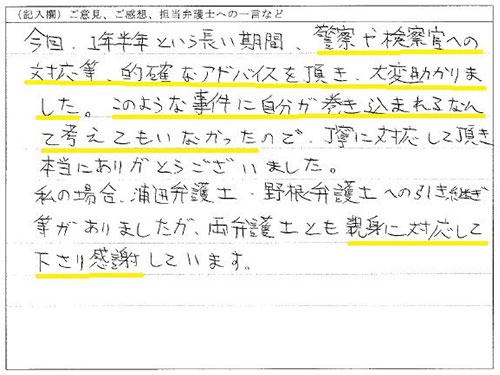 (記入欄)ご意見、ご感想、担当弁護士への一言など
今回、1年半年という長い期間、警察や検察官への
対応等、的確なアドバイスを頂き、大変助かりま
した。このような事件に自分が巻き込まれるなん
て考えてもいなかったので、丁寧に対応して頂き
本当にありがとうございました。
私の場合、浦田弁護士・野根弁護士への引き継ぎ
等がありましたが、両弁護士とも親身に対応して
下さり感謝しています。